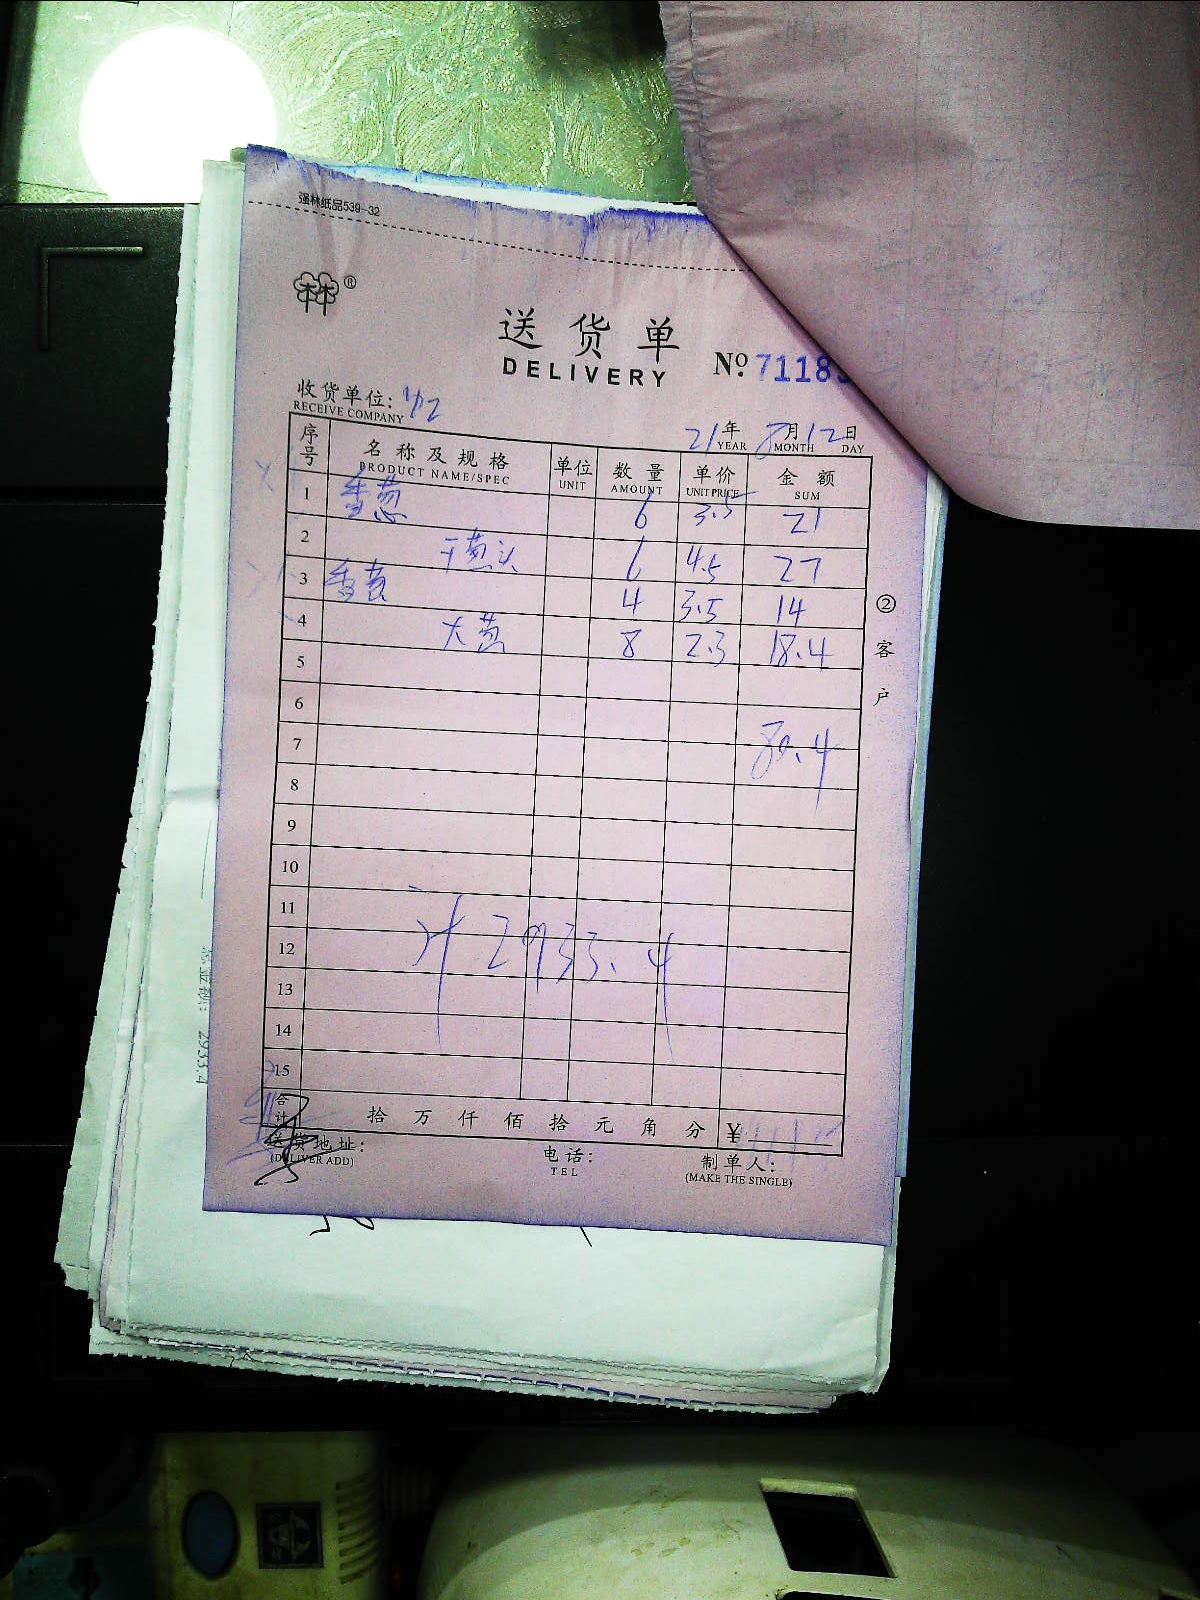 强林纸品539-32
林林®
送货单
DELIVERY
No. 7118
收货单位:
RECEIVE COMPANY
21年 8月12日
YEAR MONTH DAY
序号 名称及规格 单位 数量 单价 金额
PRODUCT NAME/SPEC UNIT AMOUNT UNIT PRICE SUM
1 香葱 6 3.5 21
2 干葱头 6 4.5 27
3 香葱 4 3.5 14
4 大葱 8 2.3 18.4
5
6
7 80.4
8
9
10
11
12 计 2933.4
13
14
15
合计 拾 万 仟 佰 拾 元 角 分 ¥
送货地址: 电话: 制单人:
(DELIVER ADD) TEL (MAKE THE SINGLE)
②客户
2933.4